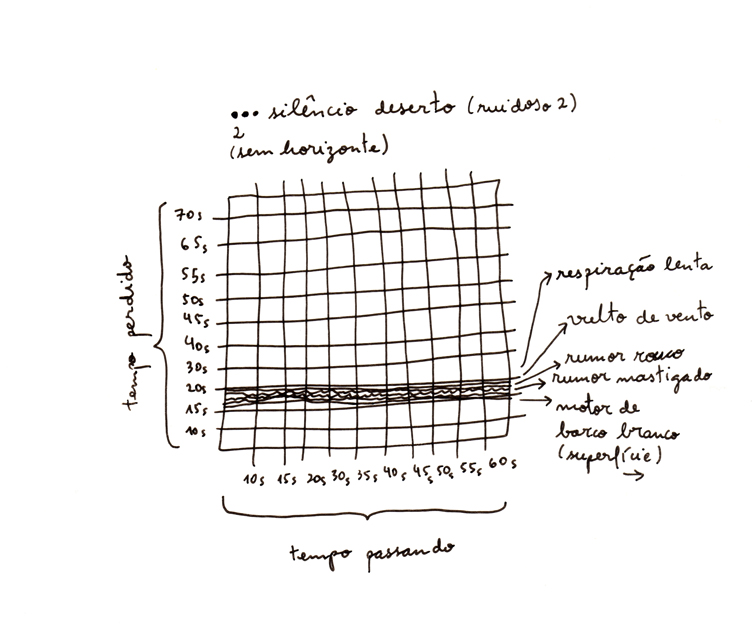 ... silêncio deserto (ruidoso 2)
2
(sem horizonte)
70s
65s
55s
50s
45s
40s
30s
20s
15s
10s
tempo perdido
respiração lenta
vulto de vento
rumor rouco
rumor mastigado
motor de
barco branco
(superfície)
10s 15s 20s 30s 35s 40s 45s 50s 55s 60s
tempo passando